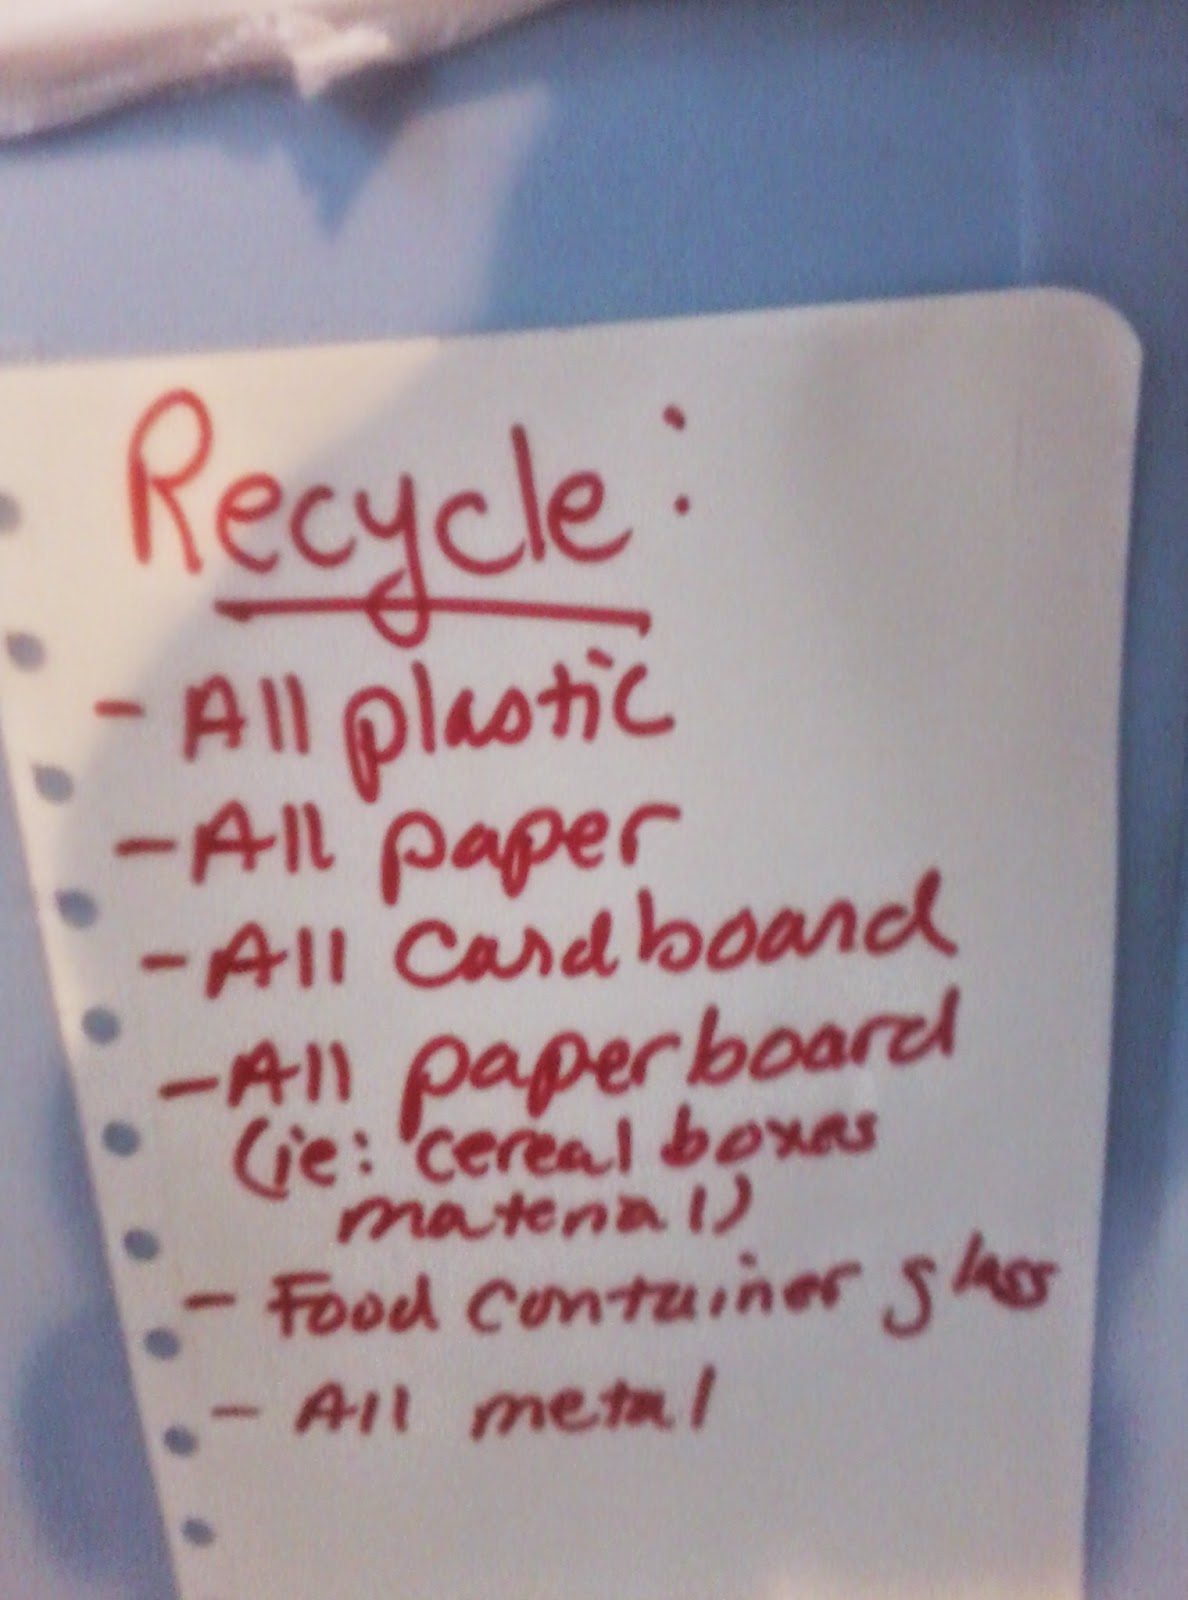 Recycle:
- All plastic
- All paper
- All cardboard
- All paperboard
(ie: cereal boxes
material)
- Food container glass
- All metal